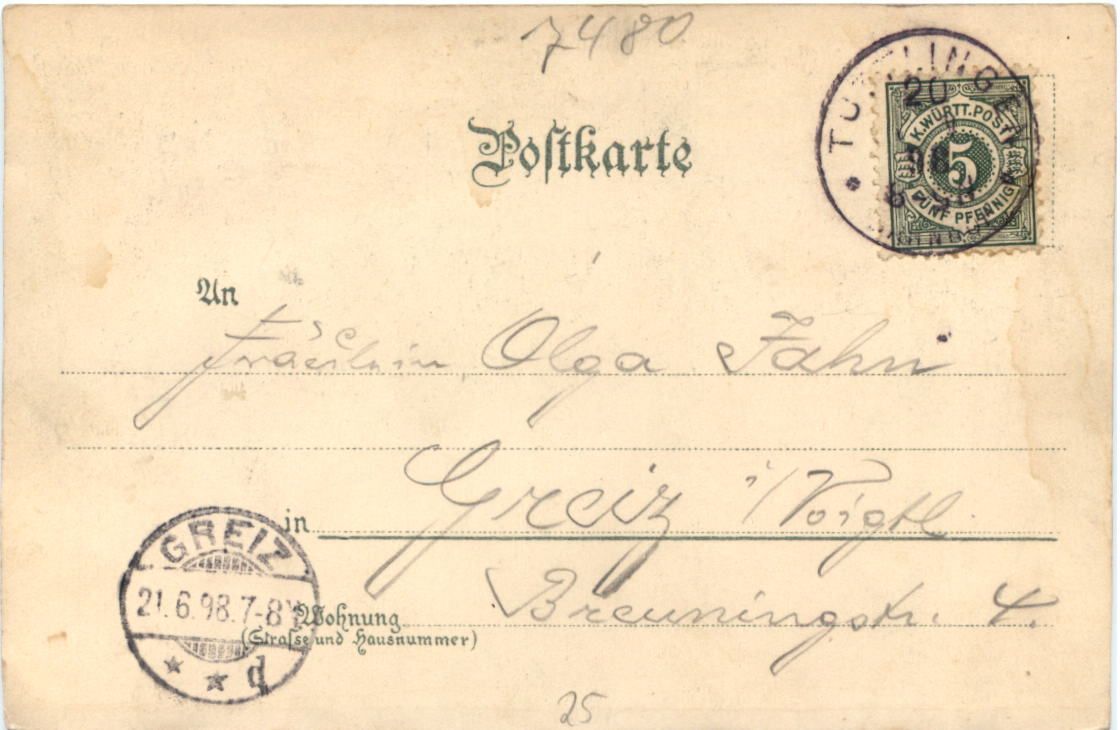 7480
Postkarte
TUTTLINGEN
20
98
K. WÜRTT. POST
5
FÜNF PFENNIG
An
Fräulein Olga Jahn
in Greiz i/Voigtl.
GREIZ
21.6.98.7-8V
Wohnung
(Straße und Hausnummer)
Breuningstr. 4.
25